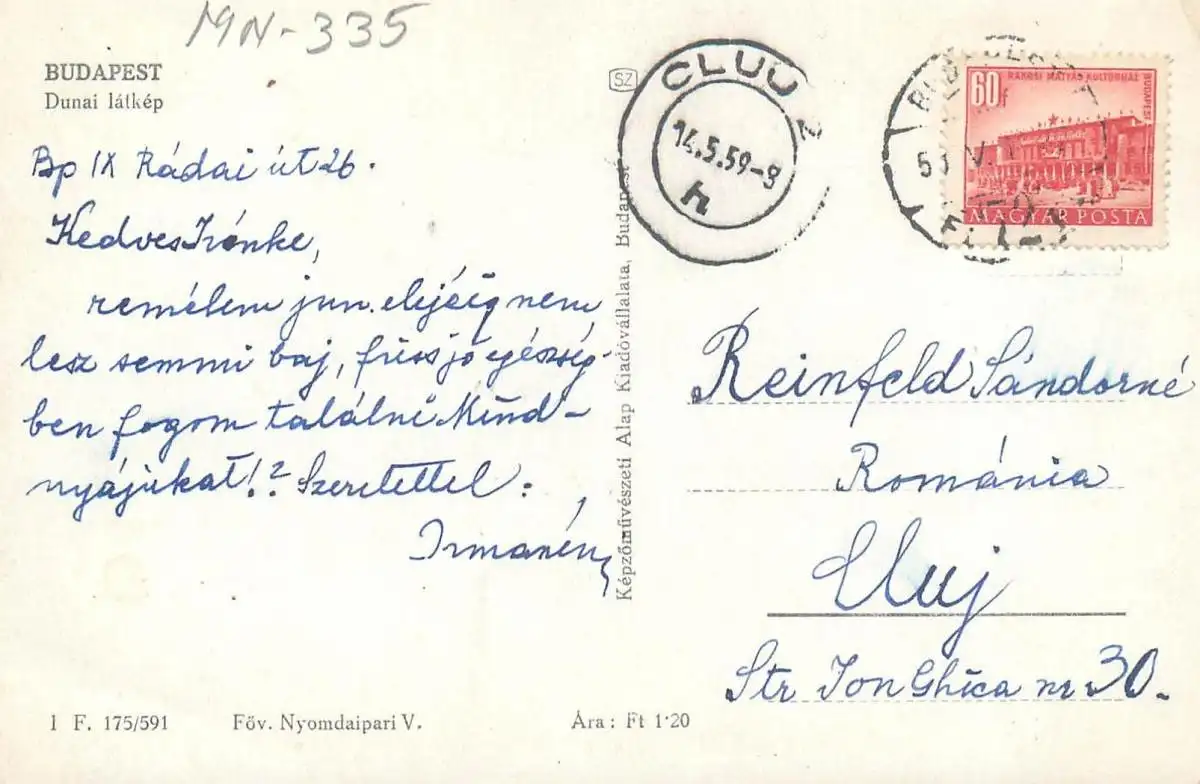 MN-335
BUDAPEST
Dunai látkép
Bp IX Rádai út 26.
Kedves Irénke,
remélem jun. elejéig nem
lesz semmi baj, friss jó egészség-
ben fogom találni Mind-
nyájukat!? Szeretettel:
Irmanéni
SZ
Képzőművészeti Alap Kiadóvállalata, Budapest
CLUJ 2
14.5.59-8
h
60f
RÁKOSI MÁTYÁS KULTÚRHÁZ
BUDAPEST
MAGYAR POSTA
Reinfeld Sándorné
Románia
Cluj
Str Ion Ghica nr 30.
1 F. 175/591
Főv. Nyomdaipari V.
Ára: Ft 1·20